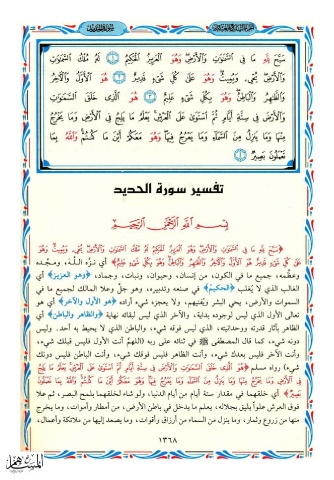 سَبَّحَ لِلَّهِ مَا فِي السَّمَاوَاتِ وَالْأَرْضِ وَهُوَ الْعَزِيزُ الْحَكِيمُ ۝١ لَهُ مُلْكُ السَّمَاوَاتِ
وَالْأَرْضِ يُحْيِي وَيُمِيتُ وَهُوَ عَلَىٰ كُلِّ شَيْءٍ قَدِيرٌ ۝٢ هُوَ الْأَوَّلُ وَالْآخِرُ
وَالظَّاهِرُ وَالْبَاطِنُ وَهُوَ بِكُلِّ شَيْءٍ عَلِيمٌ ۝٣ هُوَ الَّذِي خَلَقَ السَّمَاوَاتِ
وَالْأَرْضَ فِي سِتَّةِ أَيَّامٍ ثُمَّ اسْتَوَىٰ عَلَى الْعَرْشِ يَعْلَمُ مَا يَلِجُ فِي الْأَرْضِ وَمَا يَخْرُجُ
مِنْهَا وَمَا يَنزِلُ مِنَ السَّمَاءِ وَمَا يَعْرُجُ فِيهَا وَهُوَ مَعَكُمْ أَيْنَ مَا كُنتُمْ وَاللَّهُ بِمَا
تَعْمَلُونَ بَصِيرٌ ۝٤
تفسير سورة الحديد
بِسْمِ اللَّهِ الرَّحْمَٰنِ الرَّحِيمِ
﴿سَبَّحَ لِلَّهِ مَا فِي السَّمَاوَاتِ وَالْأَرْضِ وَهُوَ الْعَزِيزُ الْحَكِيمُ لَهُ مُلْكُ السَّمَاوَاتِ وَالْأَرْضِ يُحْيِي وَيُمِيتُ وَهُوَ
عَلَىٰ كُلِّ شَيْءٍ قَدِيرٌ هُوَ الْأَوَّلُ وَالْآخِرُ وَالظَّاهِرُ وَالْبَاطِنُ وَهُوَ بِكُلِّ شَيْءٍ عَلِيمٌ﴾ أي نزّه الله، ومجّده
وعظّمه، جميع ما في الكون، من إنسان، وحيوان، ونبات، وجماد، ﴿وهو العزيز﴾ أي
الغالب الذي لا يُغلب ﴿الحكيم﴾ في صنعه وتدبيره، وهو جلّ وعلا المالك لجميع ما في
السموات والأرض، يحيي البشر ويُفنيهم، ولا يعجزه شيء أراده ﴿هو الأول والآخر﴾ أي هو
تعالى الأول الذي ليس لوجوده بداية، والآخر الذي ليس لبقائه نهاية ﴿والظاهر والباطن﴾ أي
الظاهر بآثار قدرته ووحدانيته، الذي ليس فوقه شيء، والباطن الذي لا يحيط به أحد. وليس
دونه شيء، كما قال المصطفى ﷺ في ثنائه على ربه (اللهمّ أنت الأول فليس قبلك شيء،
وأنت الآخر فليس بعدك شيء، وأنت الظاهر فليس فوقك شيء، وأنت الباطن فليس دونك
شيء) رواه مسلم ﴿هُوَ الَّذِي خَلَقَ السَّمَاوَاتِ وَالْأَرْضَ فِي سِتَّةِ أَيَّامٍ ثُمَّ اسْتَوَىٰ عَلَى الْعَرْشِ يَعْلَمُ مَا يَلِجُ
فِي الْأَرْضِ وَمَا يَخْرُجُ مِنْهَا وَمَا يَنزِلُ مِنَ السَّمَاءِ وَمَا يَعْرُجُ فِيهَا وَهُوَ مَعَكُمْ أَيْنَ مَا كُنتُمْ وَاللَّهُ بِمَا تَعْمَلُونَ
بَصِيرٌ﴾ أي خلقهما في مقدار ستة أيام من أيام الدنيا، ولو شاء لخلقهما بلمح البصر، ثم علا
فوق العرش علواً يليق بجلاله، يعلم ما يدخل في باطن الأرض، من أمطار وأموات، وما يخرج
منها من زروع وثمار، وما ينزل من السماء من أرزاق وأقوات، وما يصعد إليها من ملائكة وأعمال،
١٣٦٨